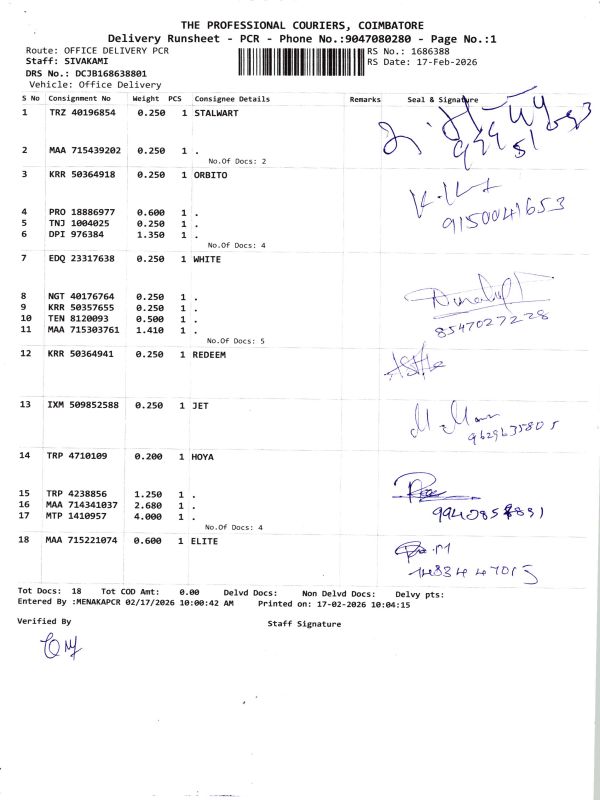 THE PROFESSIONAL COURIERS, COIMBATORE
Delivery Runsheet - PCR - Phone No.:9047080280 - Page No.:1
Route: OFFICE DELIVERY PCR RS No.: 1686388
Staff: SIVAKAMI RS Date: 17-Feb-2026
DRS No.: DCJB168638801
Vehicle: Office Delivery
S No Consignment No Weight PCS Consignee Details Remarks Seal & Signature
1 TRZ 40196854 0.250 1 STALWART
2 MAA 715439202 0.250 1 .
No.Of Docs: 2
3 KRR 50364918 0.250 1 ORBITO
9150041653
4 PRO 18886977 0.600 1 .
5 TNJ 1004025 0.250 1 .
6 DPI 976384 1.350 1 .
No.Of Docs: 4
7 EDQ 23317638 0.250 1 WHITE
8 NGT 40176764 0.250 1 .
9 KRR 50357655 0.250 1 .
10 TEN 8120093 0.500 1 .
11 MAA 715303761 1.410 1 .
8547027228
No.Of Docs: 5
12 KRR 50364941 0.250 1 REDEEM
13 IXM 509852588 0.250 1 JET
9629635805
14 TRP 4710109 0.200 1 HOYA
15 TRP 4238856 1.250 1 .
16 MAA 714341037 2.680 1 .
17 MTP 1410957 4.000 1 .
No.Of Docs: 4
18 MAA 715221074 0.600 1 ELITE
Tot Docs: 18 Tot COD Amt: 0.00 Delvd Docs: Non Delvd Docs: Delvy pts:
Entered By :MENAKAPCR 02/17/2026 10:00:42 AM Printed on: 17-02-2026 10:04:15
Verified By Staff Signature